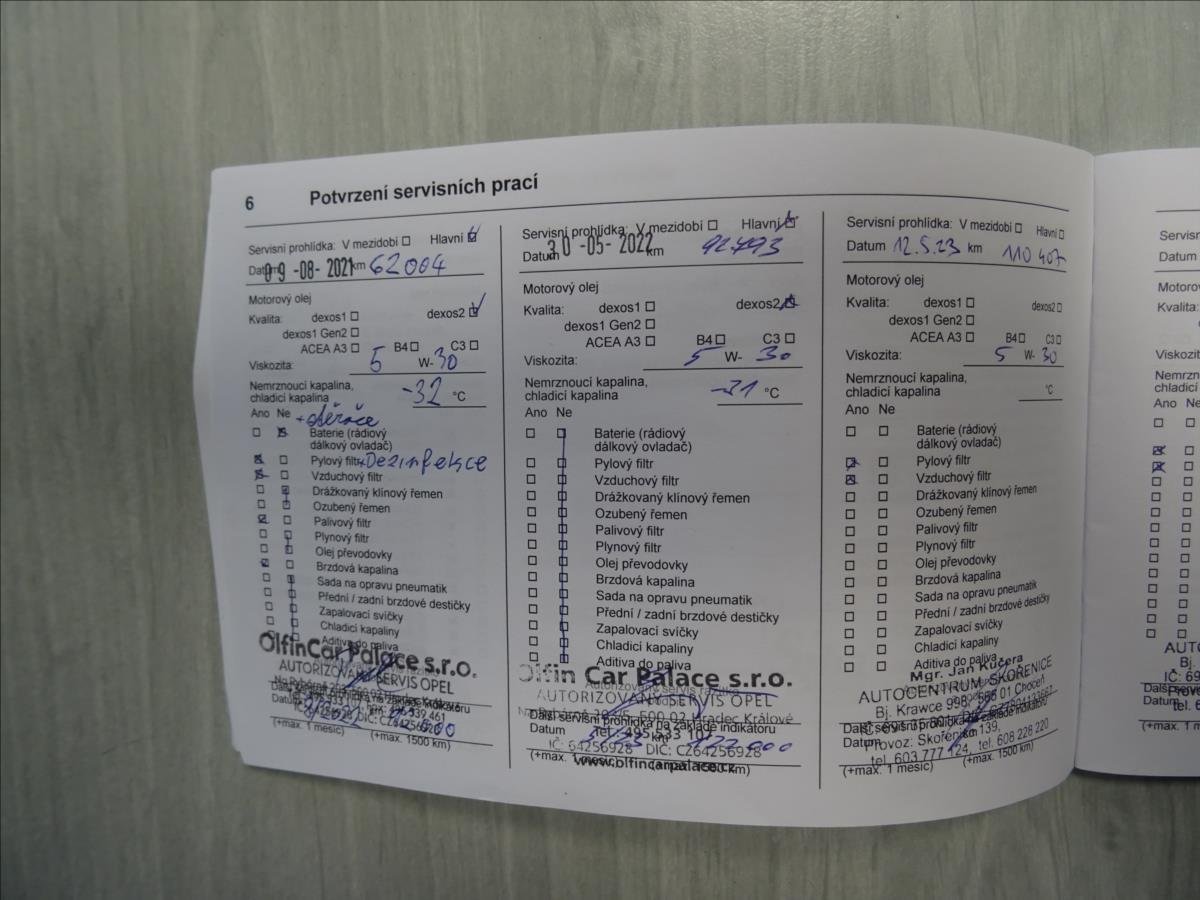 6 Potvrzení servisních prací
Servisní prohlídka: V mezidobí Hlavní
Datum 09 -08- 2021 km 62004
Motorový olej
Kvalita: dexos1 dexos2
dexos1 Gen2
ACEA A3 B4 C3
Viskozita: 5 W- 30
Nemrznoucí kapalina,
chladicí kapalina -32 °C
Ano Ne
Baterie (rádiový
dálkový ovladač)
Pylový filtr Dezinfekce
Vzduchový filtr
Drážkovaný klínový řemen
Ozubený řemen
Palivový filtr
Plynový filtr
Olej převodovky
Brzdová kapalina
Sada na opravu pneumatik
Přední / zadní brzdové destičky
Zapalovací svíčky
Chladicí kapaliny
Aditiva do paliva
OlfinCar Palace s.r.o.
AUTORIZOVANÝ SERVIS OPEL
Datum
DIČ: CZ64256928
(+max. 1 měsíc) (+max. 1500 km)
Servisní prohlídka: V mezidobí Hlavní
Datum 30 -05- 2022 km 92493
Motorový olej
Kvalita: dexos1 dexos2
dexos1 Gen2
ACEA A3 B4 C3
Viskozita: 5 W- 30
Nemrznoucí kapalina,
chladicí kapalina -31 °C
Ano Ne
Baterie (rádiový
dálkový ovladač)
Pylový filtr
Vzduchový filtr
Drážkovaný klínový řemen
Ozubený řemen
Palivový filtr
Plynový filtr
Olej převodovky
Brzdová kapalina
Sada na opravu pneumatik
Přední / zadní brzdové destičky
Zapalovací svíčky
Chladicí kapaliny
Aditiva do paliva
Olfin Car Palace s.r.o.
AUTORIZOVANÝ SERVIS OPEL
500 02 Hradec Králové
Další servisní prohlídka na základě indikátoru
Datum
IČ: 64256928 DIČ: CZ64256928
www.olfincarpalace.cz
(+max. 1 měsíc)
Servisní prohlídka: V mezidobí Hlavní
Datum 12.5.23 km 110 407
Motorový olej
Kvalita: dexos1 dexos2
dexos1 Gen2
ACEA A3 B4 C3
Viskozita: 5 W- 30
Nemrznoucí kapalina,
chladicí kapalina °C
Ano Ne
Baterie (rádiový
dálkový ovladač)
Pylový filtr
Vzduchový filtr
Drážkovaný klínový řemen
Ozubený řemen
Palivový filtr
Plynový filtr
Olej převodovky
Brzdová kapalina
Sada na opravu pneumatik
Přední / zadní brzdové destičky
Zapalovací svíčky
Chladicí kapaliny
Aditiva do paliva
Mgr. Jan Kučera
AUTOCENTRUM SKOŘENICE
Bj. Krawce 998, 565 01 Choceň
Datum Provoz: Skořenice 139,
tel. 603 777 124, tel. 608 228 220
(+max. 1 měsíc) (+max. 1500 km)
Servisní
Datum
Motorov
Kvalita:
Viskozit
Nemrzno
chladicí
Ano Ne
AUT
Bj.
IČ: 69
tel. 6
(+max